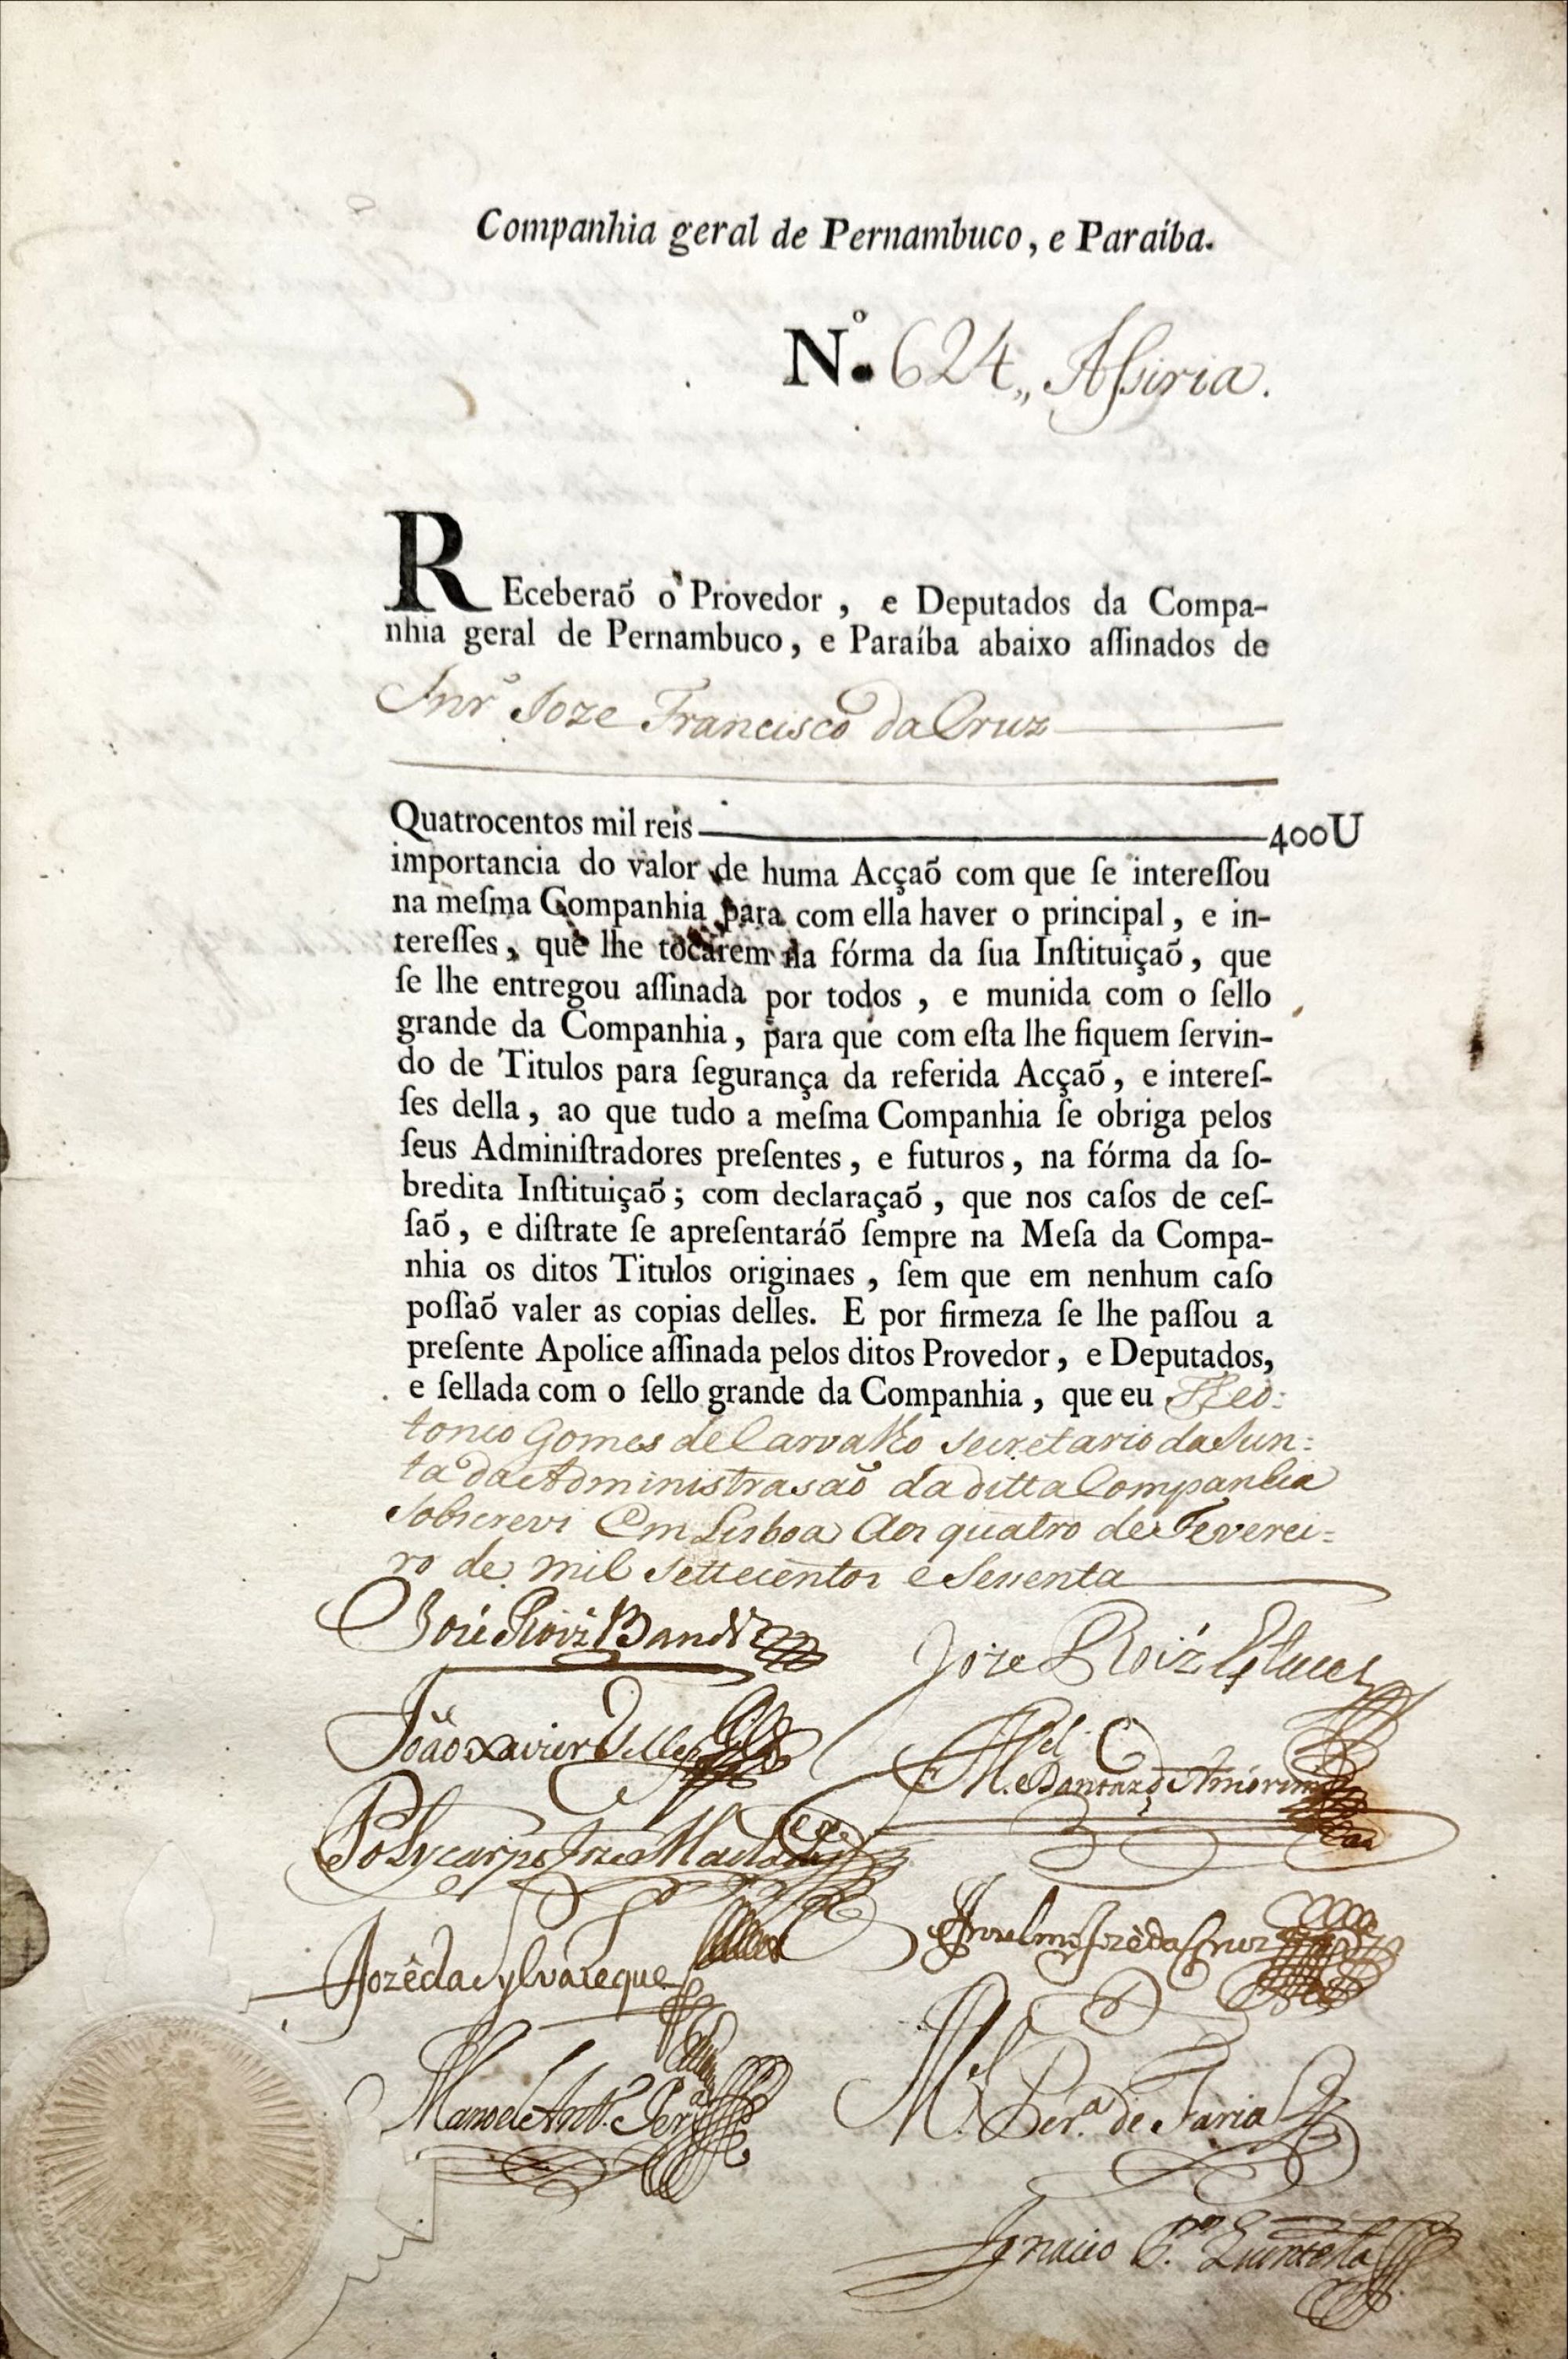 Companhia geral de Pernambuco, e Paraíba.
Nº. 624,, Aſsiria.
REceberaõ o Provedor, e Deputados da Compa-
nhia geral de Pernambuco, e Paraíba abaixo aſſinados de
Snr. Joze Francisco da Cruz
Quatrocentos mil reis 400U
importancia do valor de huma Acçaõ com que ſe intereſſou
na meſma Companhia para com ella haver o principal, e in-
tereſſes, que lhe tocarem na fórma da ſua Inſtituiçaõ, que
ſe lhe entregou aſſinada por todos, e munida com o ſello
grande da Companhia, para que com eſta lhe fiquem ſervin-
do de Titulos para ſegurança da referida Acçaõ, e intereſ-
ſes della, ao que tudo a meſma Companhia ſe obriga pelos
ſeus Adminiſtradores preſentes, e futuros, na fórma da ſo-
bredita Inſtituiçaõ; com declaraçaõ, que nos caſos de ceſ-
ſaõ, e diſtrate ſe apreſentaráõ ſempre na Meſa da Compa-
nhia os ditos Titulos originaes, ſem que em nenhum caſo
poſſaõ valer as copias delles. E por firmeza ſe lhe paſſou a
preſente Apolice aſſinada pelos ditos Provedor, e Deputados,
e ſellada com o ſello grande da Companhia, que eu Theo:
tonio Gomes de Carvalho secretario da Jun:
ta da Administrasaõ da ditta Companhia
sobscrevi Em Lisboa Aos quatro de Feverei:
ro de mil settecentos e Sessenta
José Roiz Bandra
Joze Roiz Esteves
João Xavier Telles
Mel. Dantas de Amorim
Polycarpo Joze Machado
Anselmo Jozê da Cruz
Jozê da Sylva Leque
Manoel Antº. Perª
Mel. Perª. de Faria
Ignacio Pº Quintella